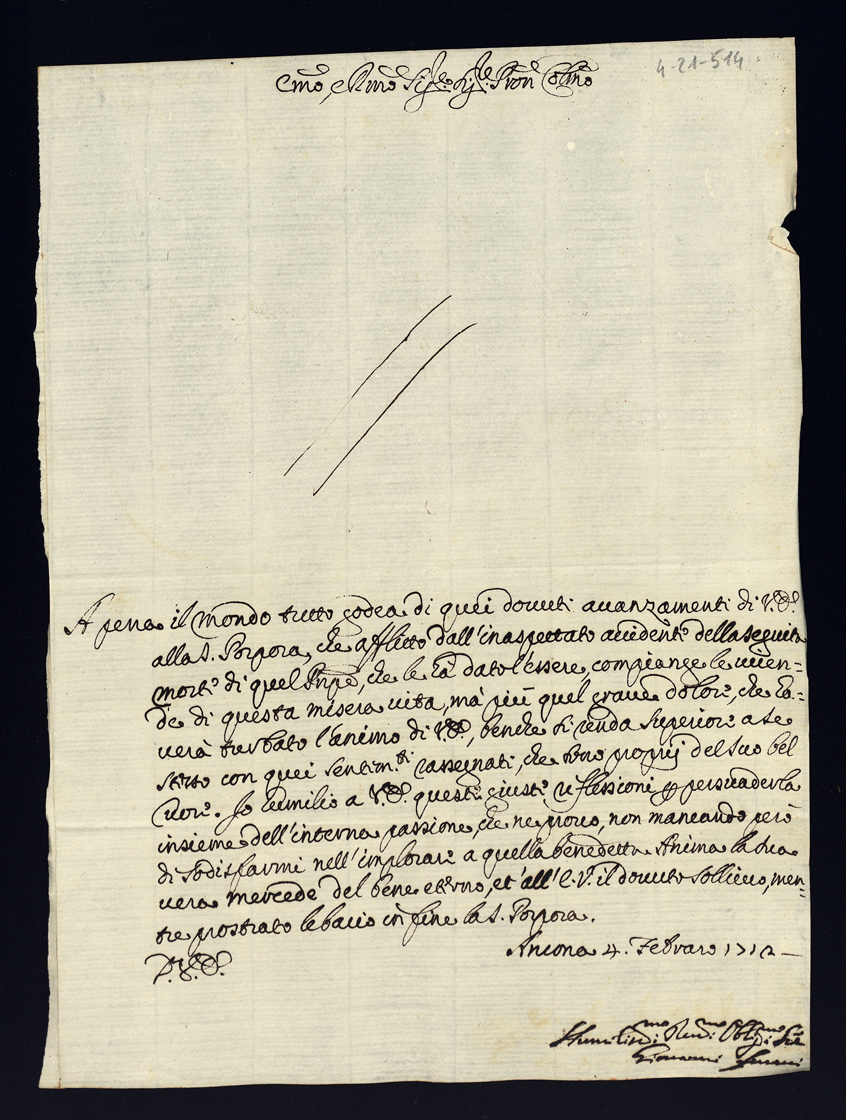 4-21-514
Emo, e Rmo Sig.re Sig.re Pron Colmo
A pena il Mondo tutto godea di quei dovuti avanzamenti di V.E.
alla S. Porpora, che afflitto dall'inaspettato accidente della seguita
morte di quel Prnpe, che le hà dato l'essere, compiange le vicen=
de di questa misera vita, mà più quel grave dolore, che ha=
verà turbato l'animo di V.E., benche si renda superiore a se
stesso con quei sentim.ti rassegnati, che sono proprij del suo bel
Cuore. Io humilio a V.E. queste giuste riflessioni p persuaderla
insieme dell'interna passione, che ne provo, non mancando però
di sodisfarmi nell'implorare a quella benedetta Anima la sua
vera mercede del bene eterno, et all'E.V. il dovuto sollievo, men=
tre prostrato le bacio in fine la S. Porpora.
Ancona 4. Febraro 1712
D. V. E.
Humiliss.mo Dev.mo Obblig.mo Se.
Giovanni